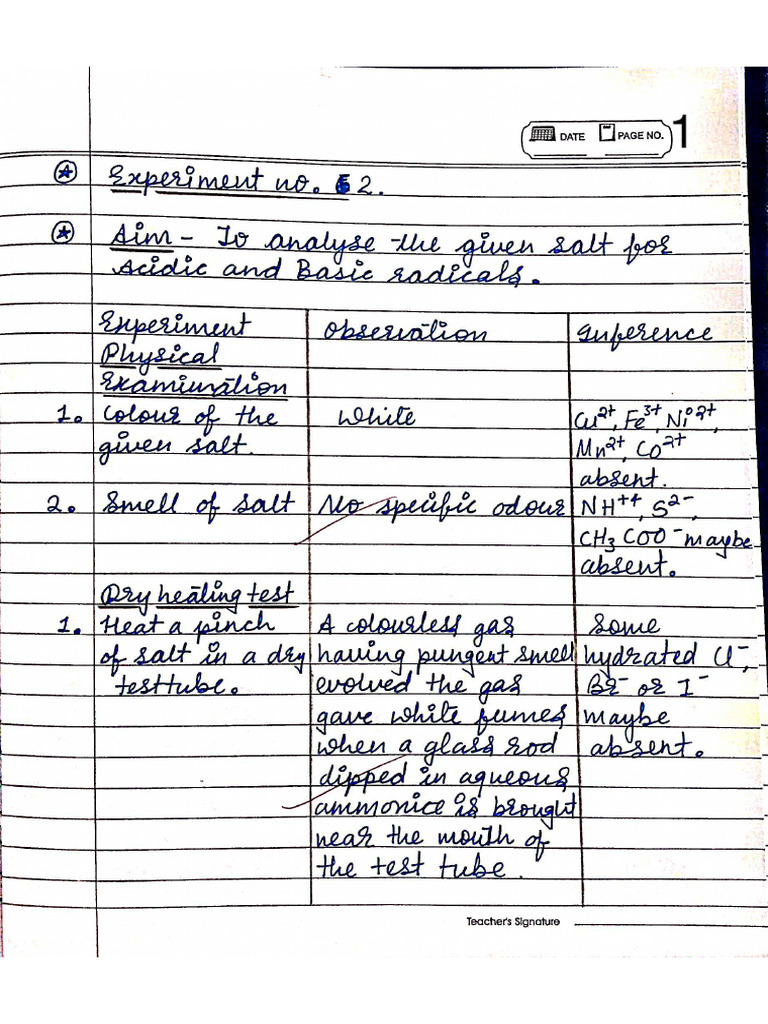 DATE PAGE NO. 1
Experiment no. 2.
Aim - To analyse the given salt for
Acidic and Basic radicals.
Experiment Observation Inference
Physical
Examination
1. Colour of the White Cu2+, Fe3+, Ni2+,
given salt. Mn2+, Co2+
absent.
2. Smell of salt No specific odour NH++, S2-,
CH3COO- maybe
absent.
Dry heating test
1. Heat a pinch A colourless gas Some
of salt in a dry having pungent smell hydrated Cl-,
test tube. evolved the gas Br- or I-
gave white fumes maybe
when a glass rod absent.
dipped in aqueous
ammonice is brought
near the mouth of
the test tube.
Teacher's Signature